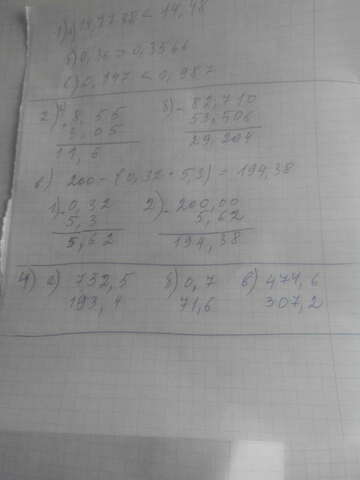 1) а) 14,4238 < 14,48
б) 0,36 > 0,3566
в) 0,147 < 0,987
2) а) + 8,55   б) - 82,710
3,05   53,506
11,6   29,204
в) 200 - (0,32 + 5,3) = 194,38
1) 0,32   2) - 200,00
5,3   5,62
5,62   194,38
4) а) 732,5   б) 0,7   в) 474,6
193,4   71,6   307,2